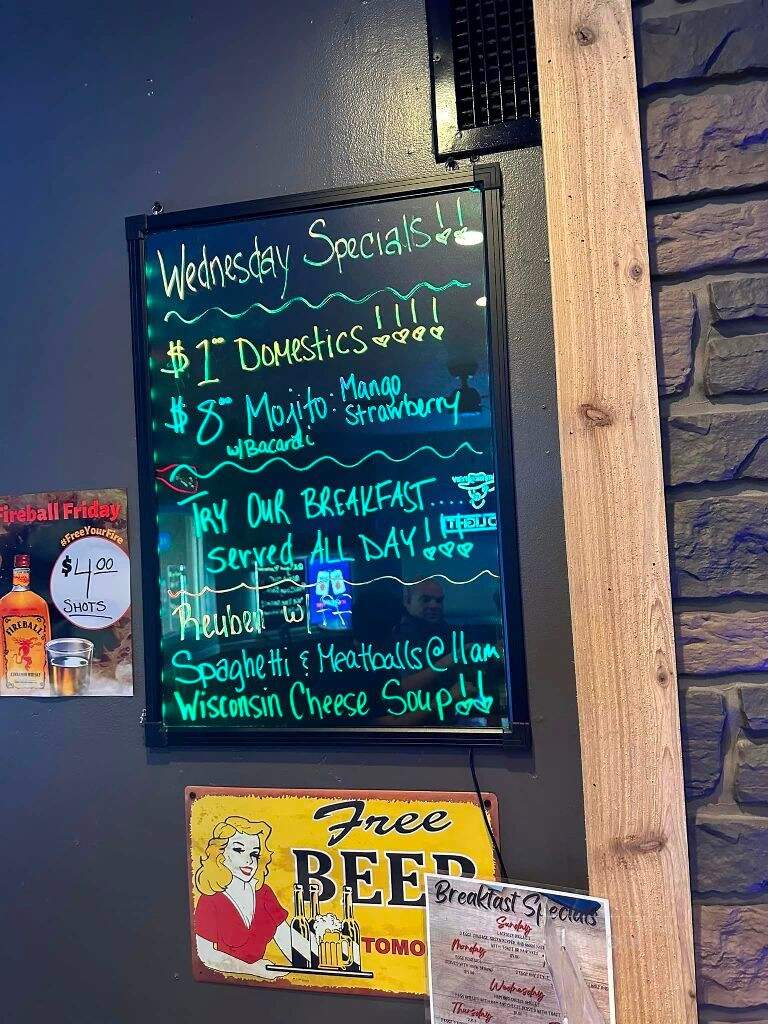 Wednesday Specials!!
$1.00 Domestics!!!!
$8.00 Mojito: Mango
Strawberry
w/ Bacardi
TRY OUR BREAKFAST....
Served ALL DAY!!!
Reuben w/
Spaghetti & Meatballs @ 11am
Wisconsin Cheese Soup!!
Fireball Friday
#FreeYourFire
$4.00
SHOTS
FIREBALL
Free
BEER
TOMO
Breakfast Specials
Sunday
Monday
Wednesday
Thursday